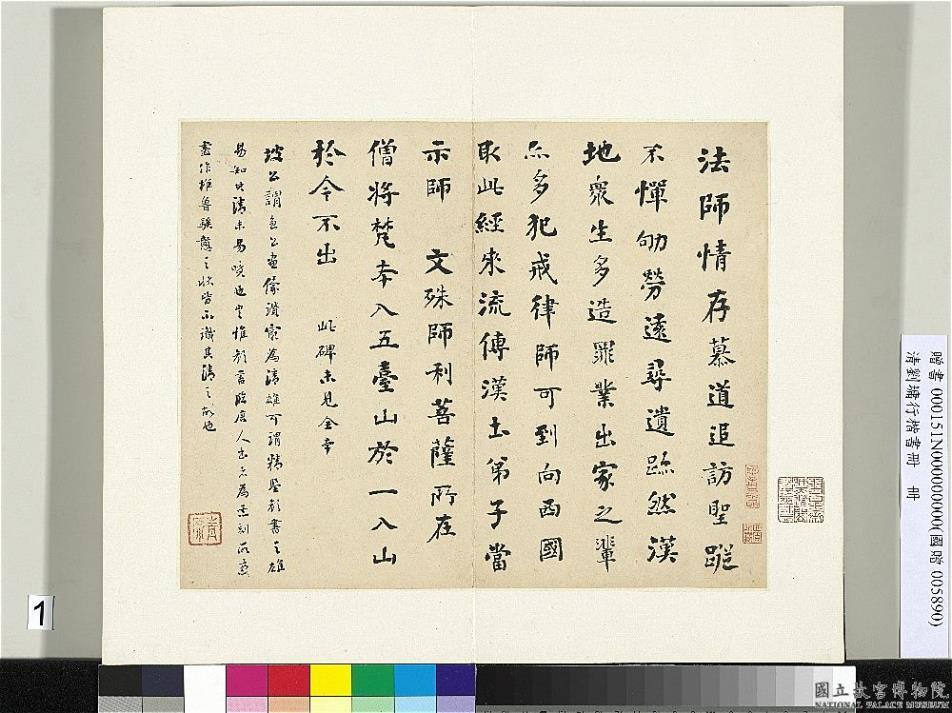 法師情存慕道追訪聖蹤
不憚劬勞遠尋遺跡然漢
地衆生多造罪業出家之輩
亦多犯戒律師可到向西國
取此經來流傳漢土弟子當
示師 文殊師利菩薩所在
僧將梵本入五臺山於一入山
於今不出 此碑未見全本
坡公謂魯公畫像清雄可謂精鑒顏書之雄
易知其清未易曉也
盡作椎魯之狀皆不識其清之故也
贈書 000151N000000000(國贈 005890)
清劉墉行楷書冊 冊
1
國立故宮博物院
NATIONAL PALACE MUSEUM